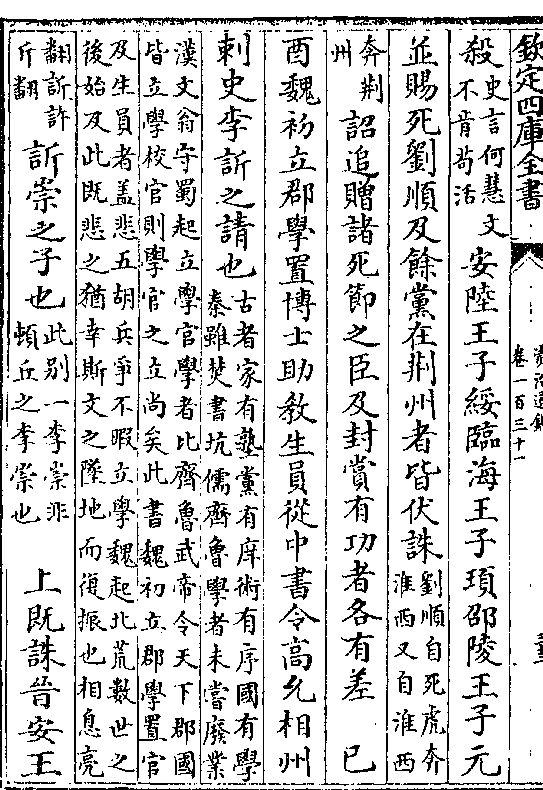 欽定四庫全書
資治通鑑
卷一百三十一
殺
史言何慧文
不肯苟活
安陸王子綏臨海王子頊邵陵王子元
並賜死劉順及餘黨在荆州者皆伏誅
劉順自死虎奔
淮西又自淮西
奔荆
州
詔追贈諸死節之臣及封賞有功者各有差 已
酉魏初立郡學置博士助敎生員從中書令高允相州
刺史李訢之請也
古者家有塾黨有庠術有序國有學
秦雖焚書坑儒齊魯學者未嘗廢業
漢文翁守蜀起立學官學者比齊魯武帝令天下郡國
皆立學校官則學官之立尚矣此書魏初立郡學置官
及生員者盖悲五胡兵爭不暇立學魏起北荒數世之
後始及此既悲之猶幸斯文之墜地而復振也相息亮
翻訢許
斤翻
訢崇之子也
此别一李崇非
頓丘之李崇也
上既誅晉安王